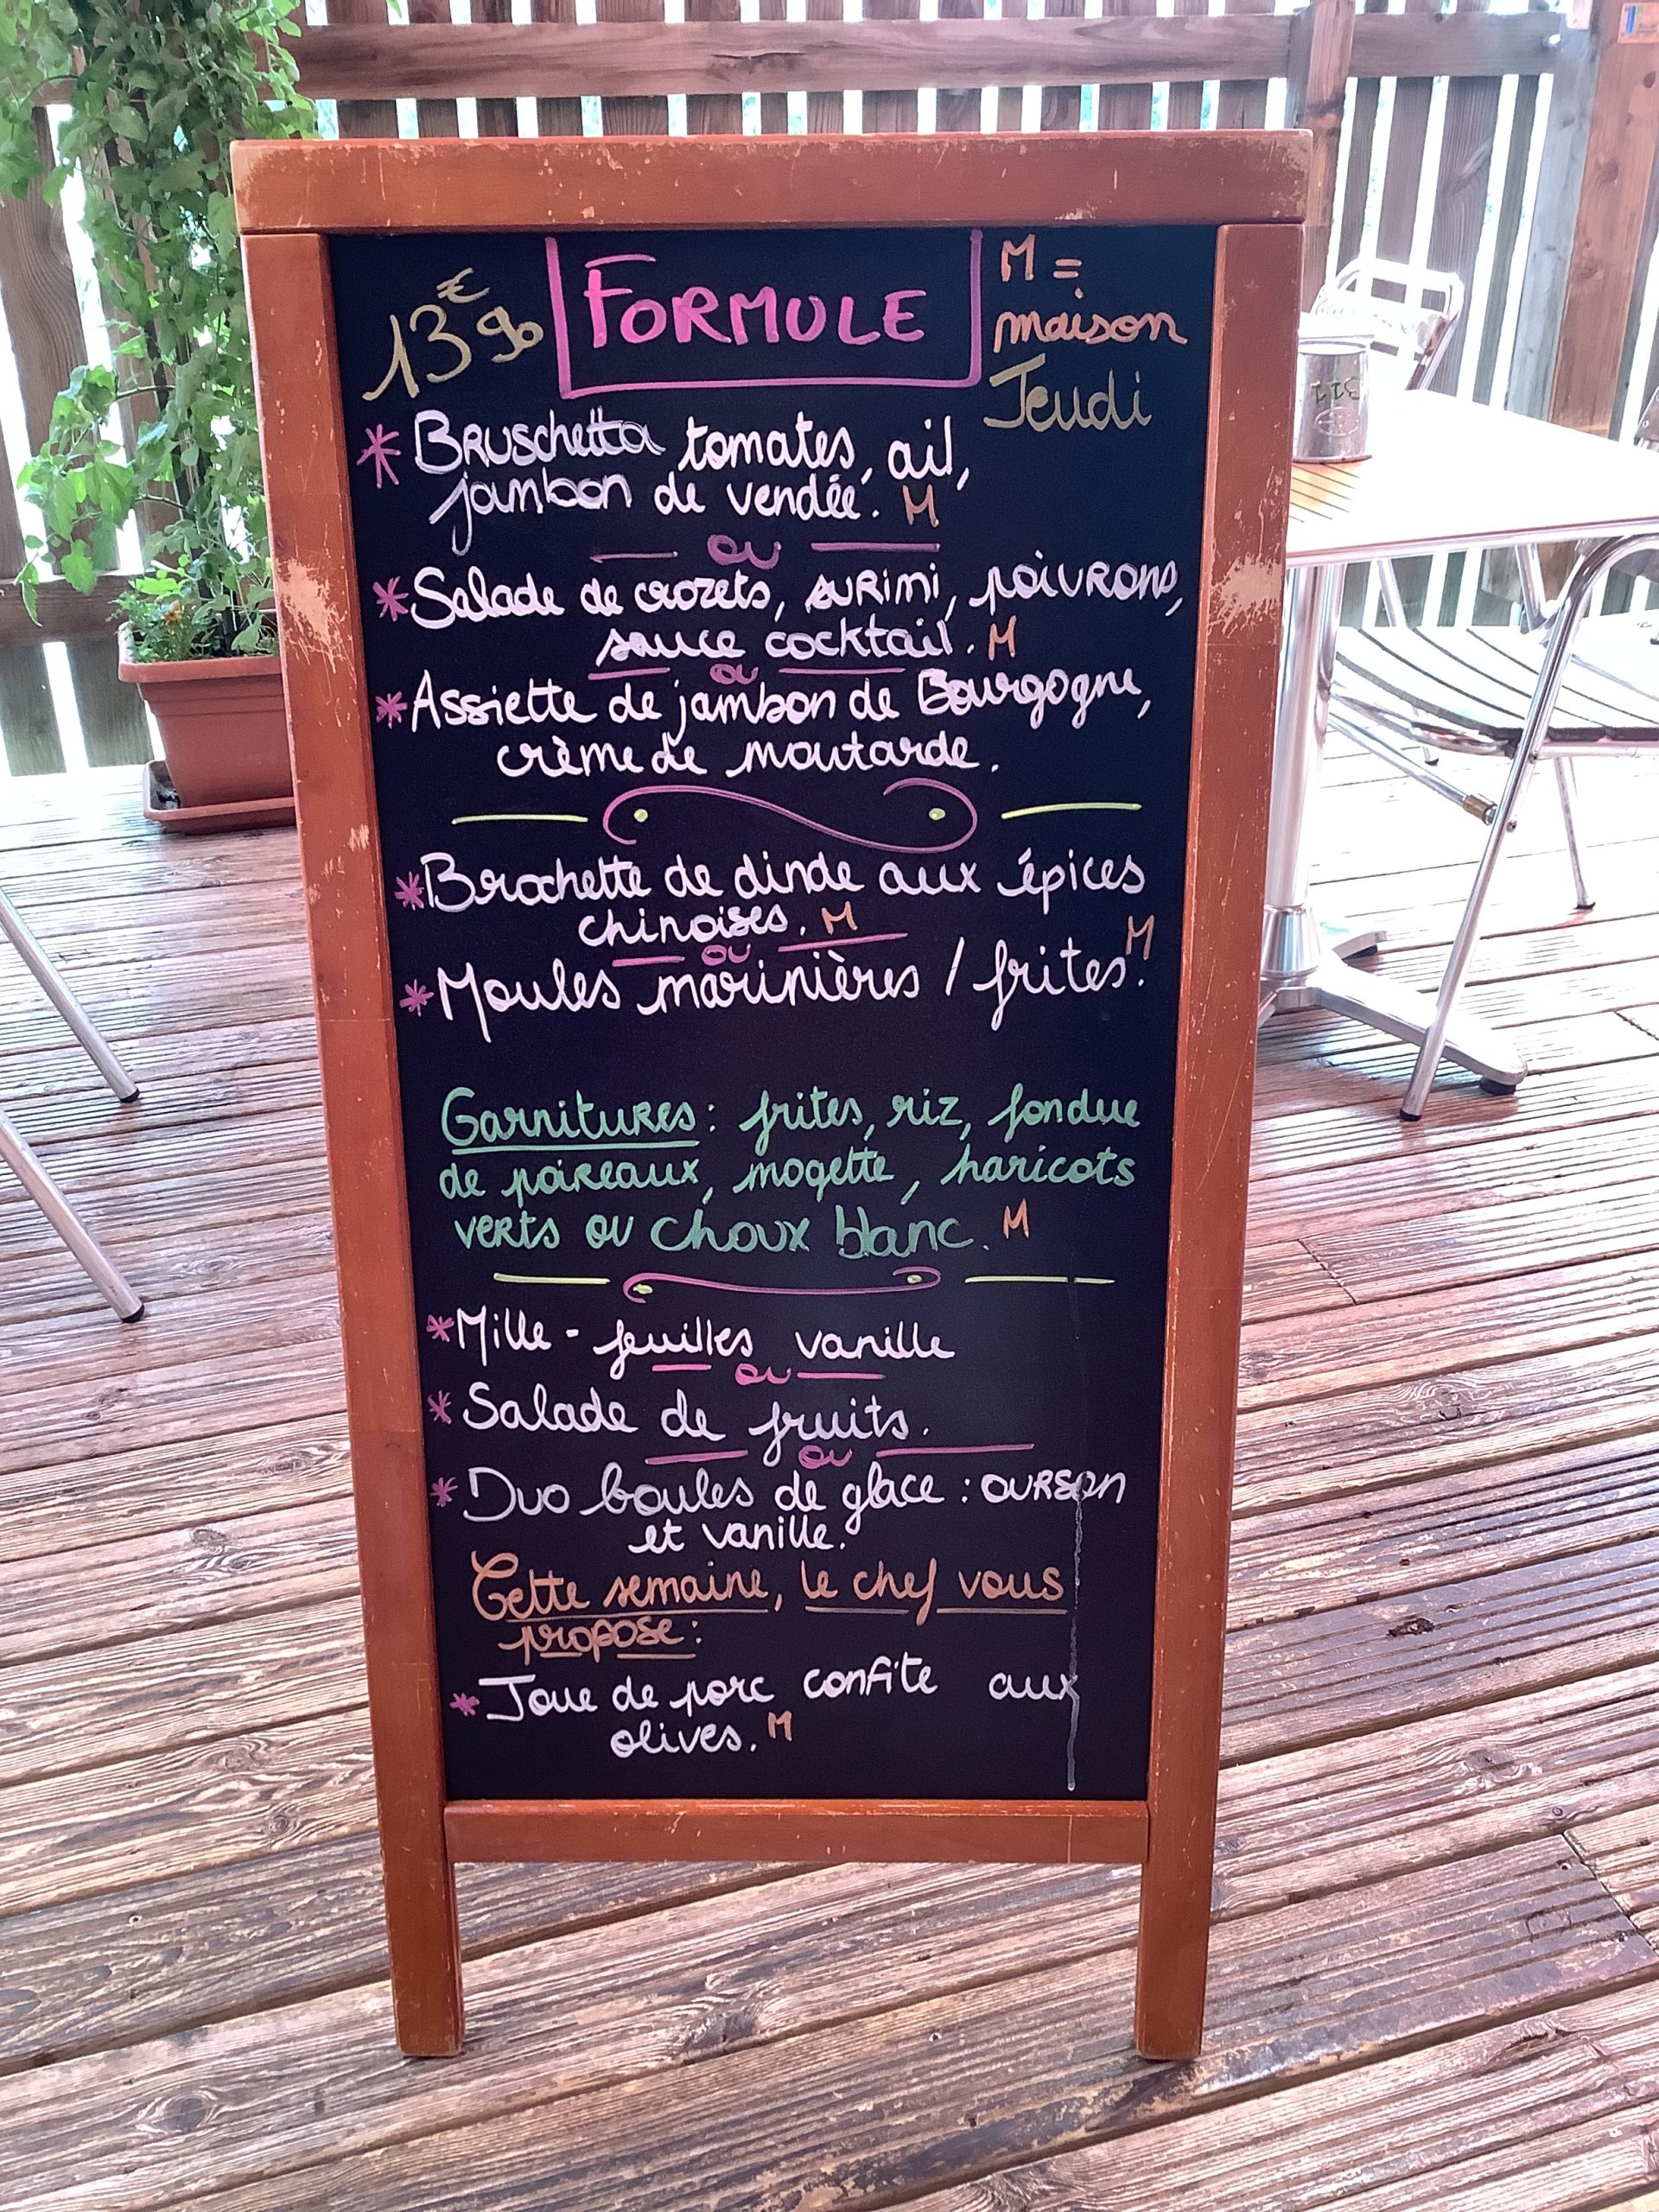 13€90 FORMULE M =
maison
Jeudi
* Bruschetta tomates, ail,
jambon de vendée. M
ou
* Salade de crozets, surimi, poivrons,
sauce cocktail. M
ou
* Assiette de jambon de Bourgogne,
crème de moutarde.
* Brochette de dinde aux épices
chinoises. M
ou
* Moules marinières / frites. M
Garnitures : frites, riz, fondue
de poireaux, mogette, haricots
verts ou choux blanc. M
* Mille-feuilles vanille
ou
* Salade de fruits.
ou
* Duo boules de glace : ourson
et vanille.
Cette semaine, le chef vous
propose :
* Joue de porc confite aux
olives. M